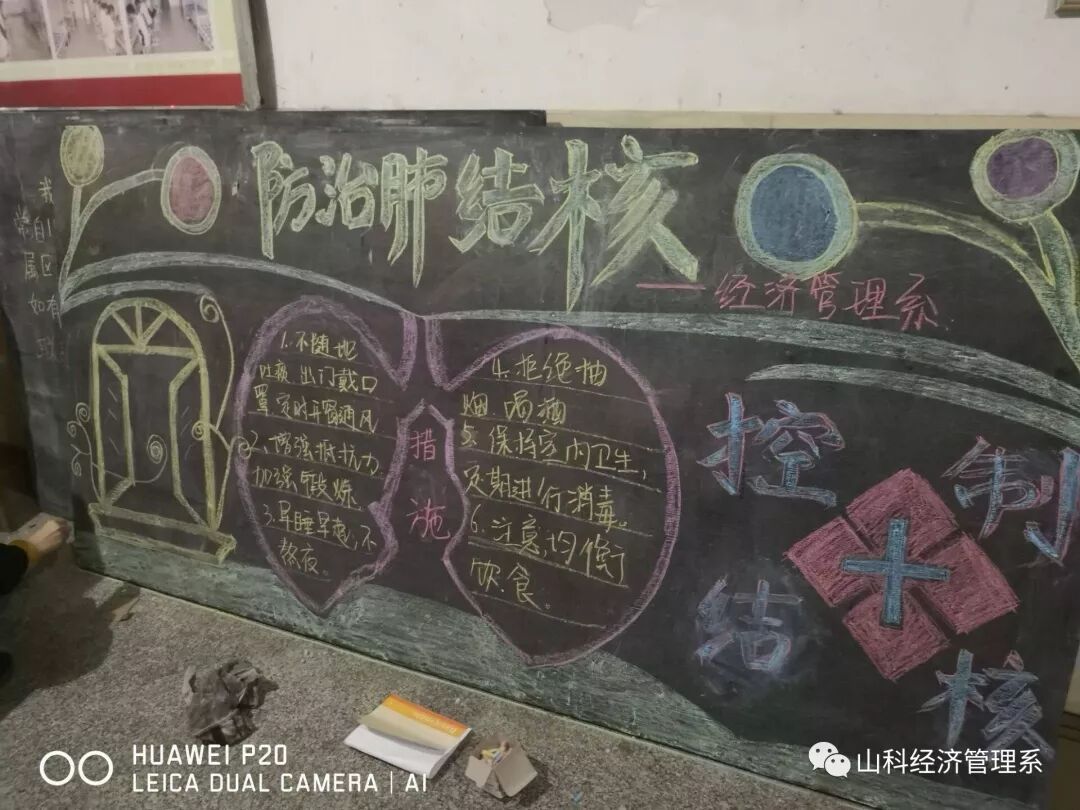 防治肺结核
——经济管理系
1.不随地
吐痰、出门戴口
罩,定时开窗通风
2.增强抵抗力
加强锻炼
3.早睡早起,不
熬夜。
措
施
4.拒绝抽
烟、喝酒
5.保持室内卫生,
定期进行消毒。
6.注意均衡
饮食。
控制
结核
HUAWEI P20
LEICA DUAL CAMERA | AI
山科经济管理系